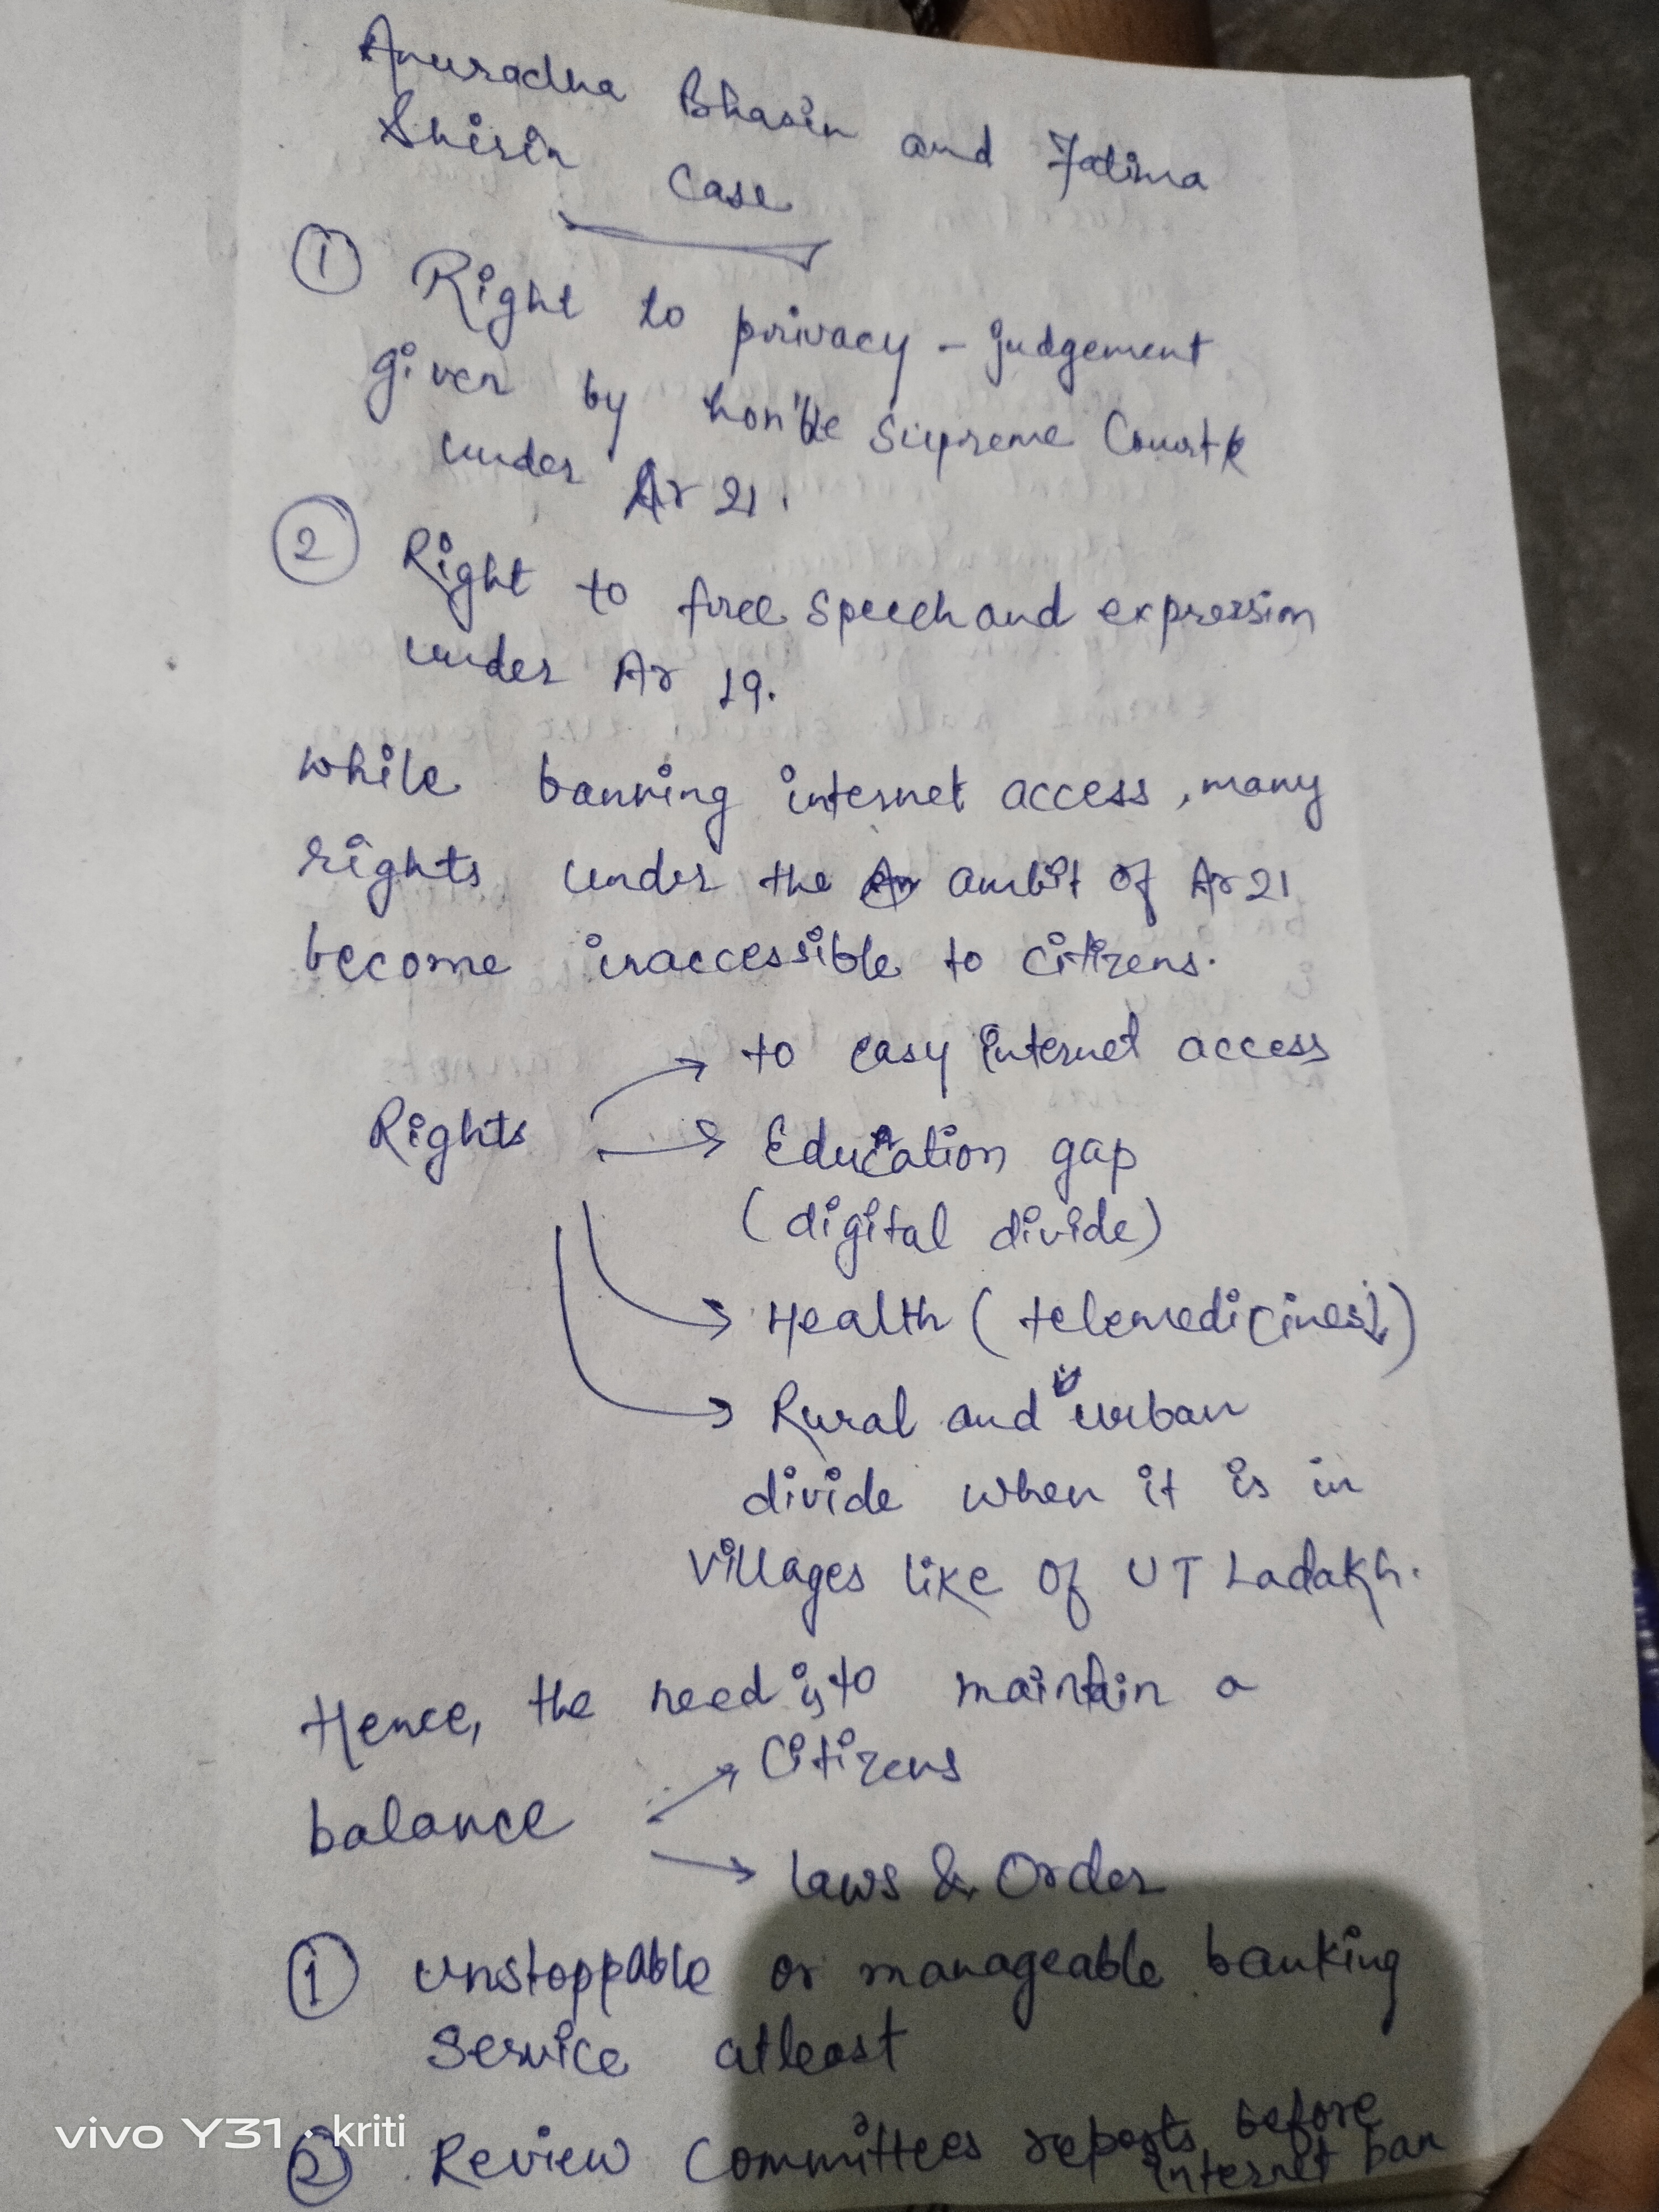 Anuradha Bhasin and Fatima
Shirin Case
① Right to privacy - judgement
given by hon'ble Supreme Court
under Ar 21.
② Right to free speech and expression
under Ar 19.
while banning internet access, many
rights under the ambit of Ar 21
become inaccessible to citizens.
Rights → to easy internet access
→ Education gap
(digital divide)
→ Health (telemedicines↓)
→ Rural and urban
divide when it is in
villages like of UT Ladakh.
Hence, the need is to maintain a
balance → Citizens
→ laws & Order
① Unstoppable or manageable banking
service atleast
② Review Committees reports before
internet ban
vivo Y31 · kriti